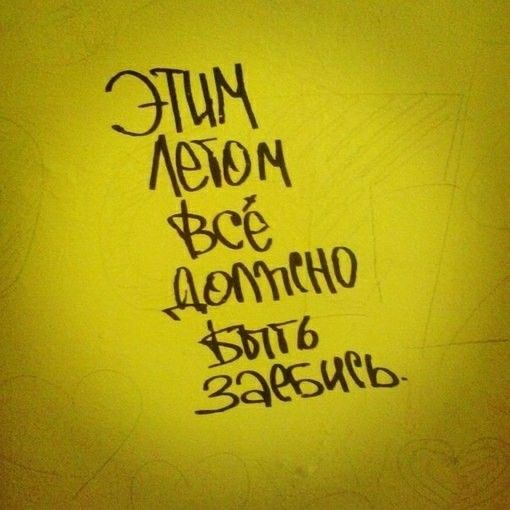 ЭТИМ
ЛЕТОМ
ВСЁ
ДОЛЖНО
БЫТЬ
ЗАЕБИСЬ.